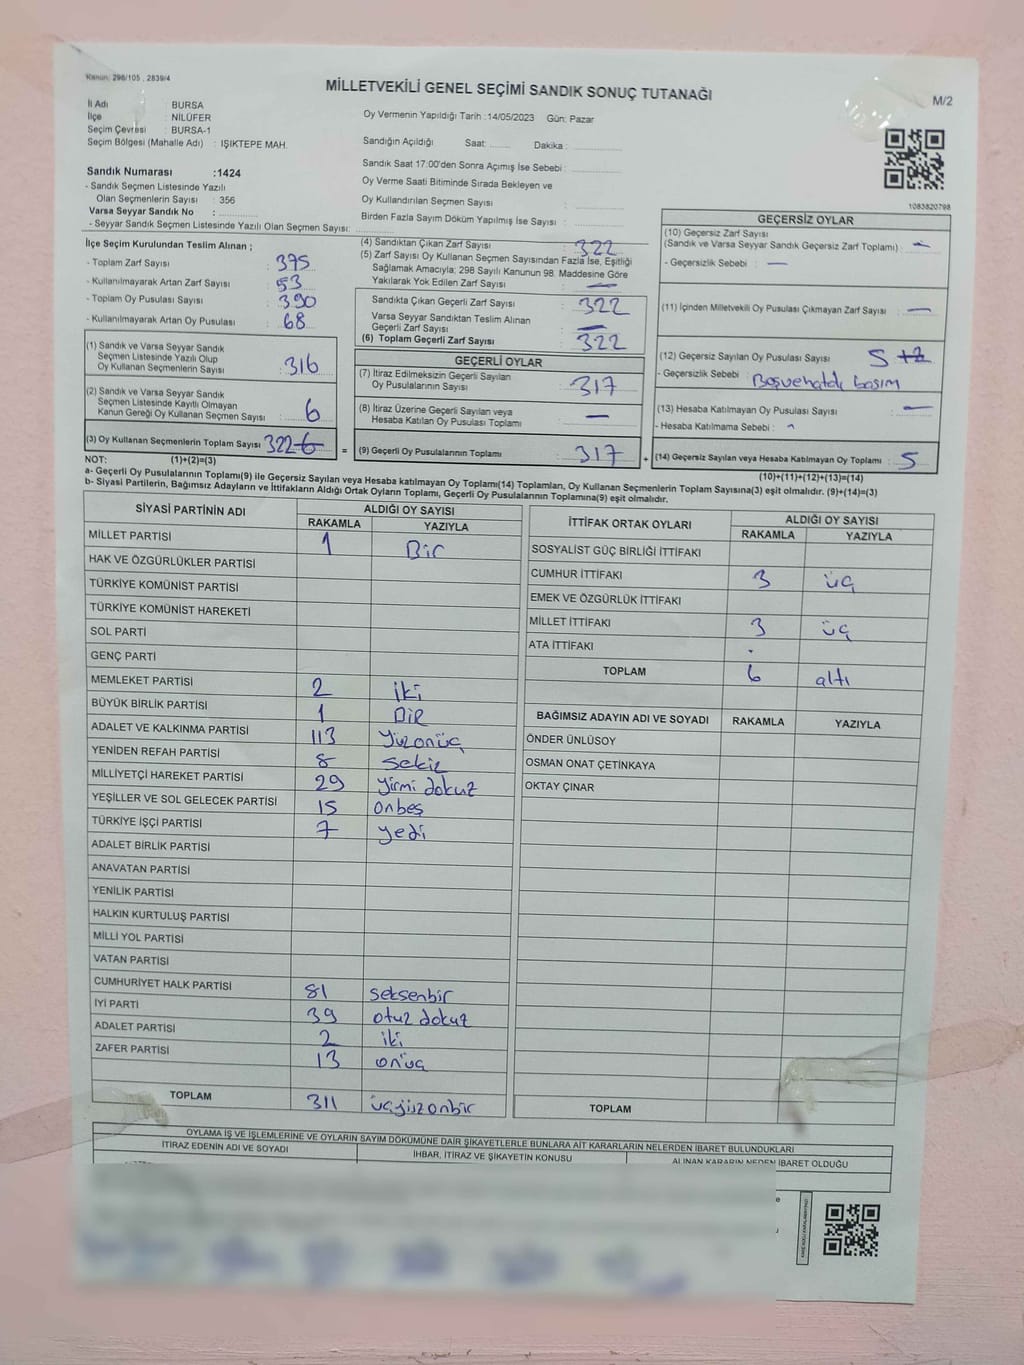 Kanun: 298/105 , 2839/4
MİLLETVEKİLİ GENEL SEÇİMİ SANDIK SONUÇ TUTANAĞI
M/2
İl Adı : BURSA
İlçe : NİLÜFER
Seçim Çevresi : BURSA-1
Seçim Bölgesi (Mahalle Adı) : IŞIKTEPE MAH.
Sandık Numarası :1424
- Sandık Seçmen Listesinde Yazılı
Olan Seçmenlerin Sayısı : 356
Varsa Seyyar Sandık No :
- Seyyar Sandık Seçmen Listesinde Yazılı Olan Seçmen Sayısı:
Oy Vermenin Yapıldığı Tarih :14/05/2023 Gün: Pazar
Sandığın Açıldığı Saat: Dakika :
Sandık Saat 17:00'den Sonra Açımış İse Sebebi :
Oy Verme Saati Bitiminde Sırada Bekleyen ve
Oy Kullandırılan Seçmen Sayısı :
Birden Fazla Sayım Döküm Yapılmış İse Sayısı :
1083820798
İlçe Seçim Kurulundan Teslim Alınan ;
- Toplam Zarf Sayısı : 375
- Kullanılmayarak Artan Zarf Sayısı : 53
- Toplam Oy Pusulası Sayısı : 390
- Kullanılmayarak Artan Oy Pusulası : 68
(1) Sandık ve Varsa Seyyar Sandık
Seçmen Listesinde Yazılı Olup
Oy Kullanan Seçmenlerin Sayısı : 316
(2) Sandık ve Varsa Seyyar Sandık
Seçmen Listesinde Kayıtlı Olmayan
Kanun Gereği Oy Kullanan Seçmen Sayısı : 6
(3) Oy Kullanan Seçmenlerin Toplam Sayısı : 322 6 =
(4) Sandıktan Çıkan Zarf Sayısı : 322
(5) Zarf Sayısı Oy Kullanan Seçmen Sayısından Fazla İse, Eşitliği
Sağlamak Amacıyla; 298 Sayılı Kanunun 98. Maddesine Göre
Yakılarak Yok Edilen Zarf Sayısı : —
Sandıkta Çıkan Geçerli Zarf Sayısı : 322
Varsa Seyyar Sandıktan Teslim Alınan
Geçerli Zarf Sayısı : —
(6) Toplam Geçerli Zarf Sayısı : 322
GEÇERLİ OYLAR
(7) İtiraz Edilmeksizin Geçerli Sayılan
Oy Pusulalarının Sayısı : 317
(8) İtiraz Üzerine Geçerli Sayılan veya
Hesaba Katılan Oy Pusulası Toplamı : —
(9) Geçerli Oy Pusulalarının Toplamı : 317 +
GEÇERSİZ OYLAR
(10) Geçersiz Zarf Sayısı
(Sandık ve Varsa Seyyar Sandık Geçersiz Zarf Toplamı) : —
- Geçersizlik Sebebi : —
(11) İçinden Milletvekili Oy Pusulası Çıkmayan Zarf Sayısı : —
(12) Geçersiz Sayılan Oy Pusulası Sayısı : 5
- Geçersizlik Sebebi : Boşvehatalı basım
(13) Hesaba Katılmayan Oy Pusulası Sayısı : —
- Hesaba Katılmama Sebebi : -
(14) Geçersiz Sayılan veya Hesaba Katılmayan Oy Toplamı : 5
NOT: (1)+(2)=(3)
(10)+(11)+(12)+(13)=(14)
a- Geçerli Oy Pusulalarının Toplamı(9) ile Geçersiz Sayılan veya Hesaba katılmayan Oy Toplamı(14) Toplamları, Oy Kullanan Seçmenlerin Toplam Sayısına(3) eşit olmalıdır. (9)+(14)=(3)
b- Siyasi Partilerin, Bağımsız Adayların ve İttifakların Aldığı Ortak Oyların Toplamı, Geçerli Oy Pusulalarının Toplamına(9) eşit olmalıdır.
SİYASİ PARTİNİN ADI ALDIĞI OY SAYISI
RAKAMLA YAZIYLA
MİLLET PARTİSİ 1 Bir
HAK VE ÖZGÜRLÜKLER PARTİSİ
TÜRKİYE KOMÜNİST PARTİSİ
TÜRKİYE KOMÜNİST HAREKETİ
SOL PARTİ
GENÇ PARTİ
MEMLEKET PARTİSİ 2 iki
BÜYÜK BİRLİK PARTİSİ 1 BİR
ADALET VE KALKINMA PARTİSİ 113 Yüzonüç
YENİDEN REFAH PARTİSİ 8 sekiz
MİLLİYETÇİ HAREKET PARTİSİ 29 yirmi dokuz
YEŞİLLER VE SOL GELECEK PARTİSİ 15 onbeş
TÜRKİYE İŞÇİ PARTİSİ 7 yedi
ADALET BİRLİK PARTİSİ
ANAVATAN PARTİSİ
YENİLİK PARTİSİ
HALKIN KURTULUŞ PARTİSİ
MİLLİ YOL PARTİSİ
VATAN PARTİSİ
CUMHURİYET HALK PARTİSİ 81 seksenbir
İYİ PARTİ 39 otuz dokuz
ADALET PARTİSİ 2 iki
ZAFER PARTİSİ 13 onüç
TOPLAM 311 üçyüzonbir
İTTİFAK ORTAK OYLARI ALDIĞI OY SAYISI
RAKAMLA YAZIYLA
SOSYALİST GÜÇ BİRLİĞİ İTTİFAKI
CUMHUR İTTİFAKI 3 üç
EMEK VE ÖZGÜRLÜK İTTİFAKI
MİLLET İTTİFAKI 3 üç
ATA İTTİFAKI
TOPLAM 6 altı
BAĞIMSIZ ADAYIN ADI VE SOYADI RAKAMLA YAZIYLA
ÖNDER ÜNLÜSOY
OSMAN ONAT ÇETİNKAYA
OKTAY ÇINAR
TOPLAM
OYLAMA İŞ VE İŞLEMLERİNE VE OYLARIN SAYIM DÖKÜMÜNE DAİR ŞİKAYETLERLE BUNLARA AİT KARARLARIN NELERDEN İBARET BULUNDUKLARI
İTİRAZ EDENİN ADI VE SOYADI İHBAR, İTİRAZ VE ŞİKAYETİN KONUSU ALINAN KARARIN NEDEN İBARET OLDUĞU